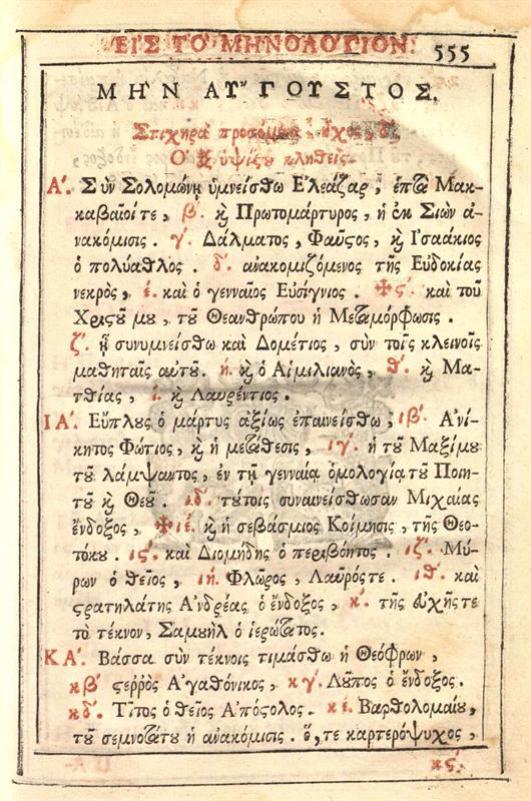 ΕΙΣ ΤΟ ΜΗΝΟΛΟΓΙΟΝ. 555
ΜΗΝ ΑΥ῎ΓΟΥΣΤΟΣ.
Στιχηρὰ προσόμοια, ἦχος, δ΄.
Ὁ ἐξ ὑψίςου κληθείς.
Α΄. Σὺν Σολομώνῃ ὑμνείσθω Ἐλεάζαρ, ἑπτὰ Μακ-
καβαῖοί τε, β΄. κ̀ Πρωτομάρτυρος, ἡ ἐκ Σιὼν ἀ-
νακόμισις. γ΄. Δάλματος, Φαῦςος, κ̀ Ἰσαάκιος
ὁ πολύαθλος. δ΄. ἀνακομιζόμενος τῆς Εὐδοκίας
νεκρὸς, έ. καὶ ὁ γενναῖος Εὐσίγνιος. ✠ς΄. καὶ τοῦ
Χριςοῦ μου, τοῦ Θεανθρώπου ἡ Μεταμόρφωσις.
ζ΄. ᾗ συνυμνείσθω καὶ Δομέτιος, σὺν τοῖς κλεινοῖς
μαθηταῖς αὐτοῦ. ή. κ̀ ὁ Αἰμιλιανὸς, θ΄. κ̀ Μα-
τθίας, ί. κ̀ Λαυρέντιος.
ΙΑ΄. Εὔπλους ὁ μάρτυς ἀξίως ἐπαινείσθω, ιβ΄. Ἀνί-
κητος Φώτιος, κ̀ ἡ μετάθεσις, ιγ΄. ἡ τοῦ Μαξίμου
τοῦ λάμψαντος, ἐν τῇ γενναίᾳ ὁμολογίᾳ τοῦ Ποιη-
τοῦ κ̀ Θεοῦ. ιδ΄. τούτοις συναινείσθωσαν Μιχαίας
ἔνδοξος, ✠ιέ. κ̀ ἡ σεβάσμιος Κοίμησις, τῆς Θεο-
τόκου. ις΄. καὶ Διομήδης ὁ περιβόητος. ιζ΄. Μύ-
ρων ὁ θεῖος, ιή. Φλῶρος, Λαῦρόςτε. ιθ΄. καὶ
ςρατηλάτης Ἀνδρέας ὁ ἔνδοξος, κ΄. τῆς εὐχῆςτε
τὸ τέκνον, Σαμουὴλ ὁ ἱερώτατος.
ΚΑ΄. Βάσσα σὺν τέκνοις τιμάσθω ἡ Θεόφρων,
κβ΄ ςερρὸς Ἀγαθόνικος, κγ΄. Λοῦπος ὁ ἔνδοξος.
κδ΄. Τίτος ὁ θεῖος Ἀπόςολος. κέ. Βαρθολομαίου,
τοῦ σεμνοτάτου ἡ ἀνακόμισις. ὅ, τε καρτερόψυχος,
κς΄.